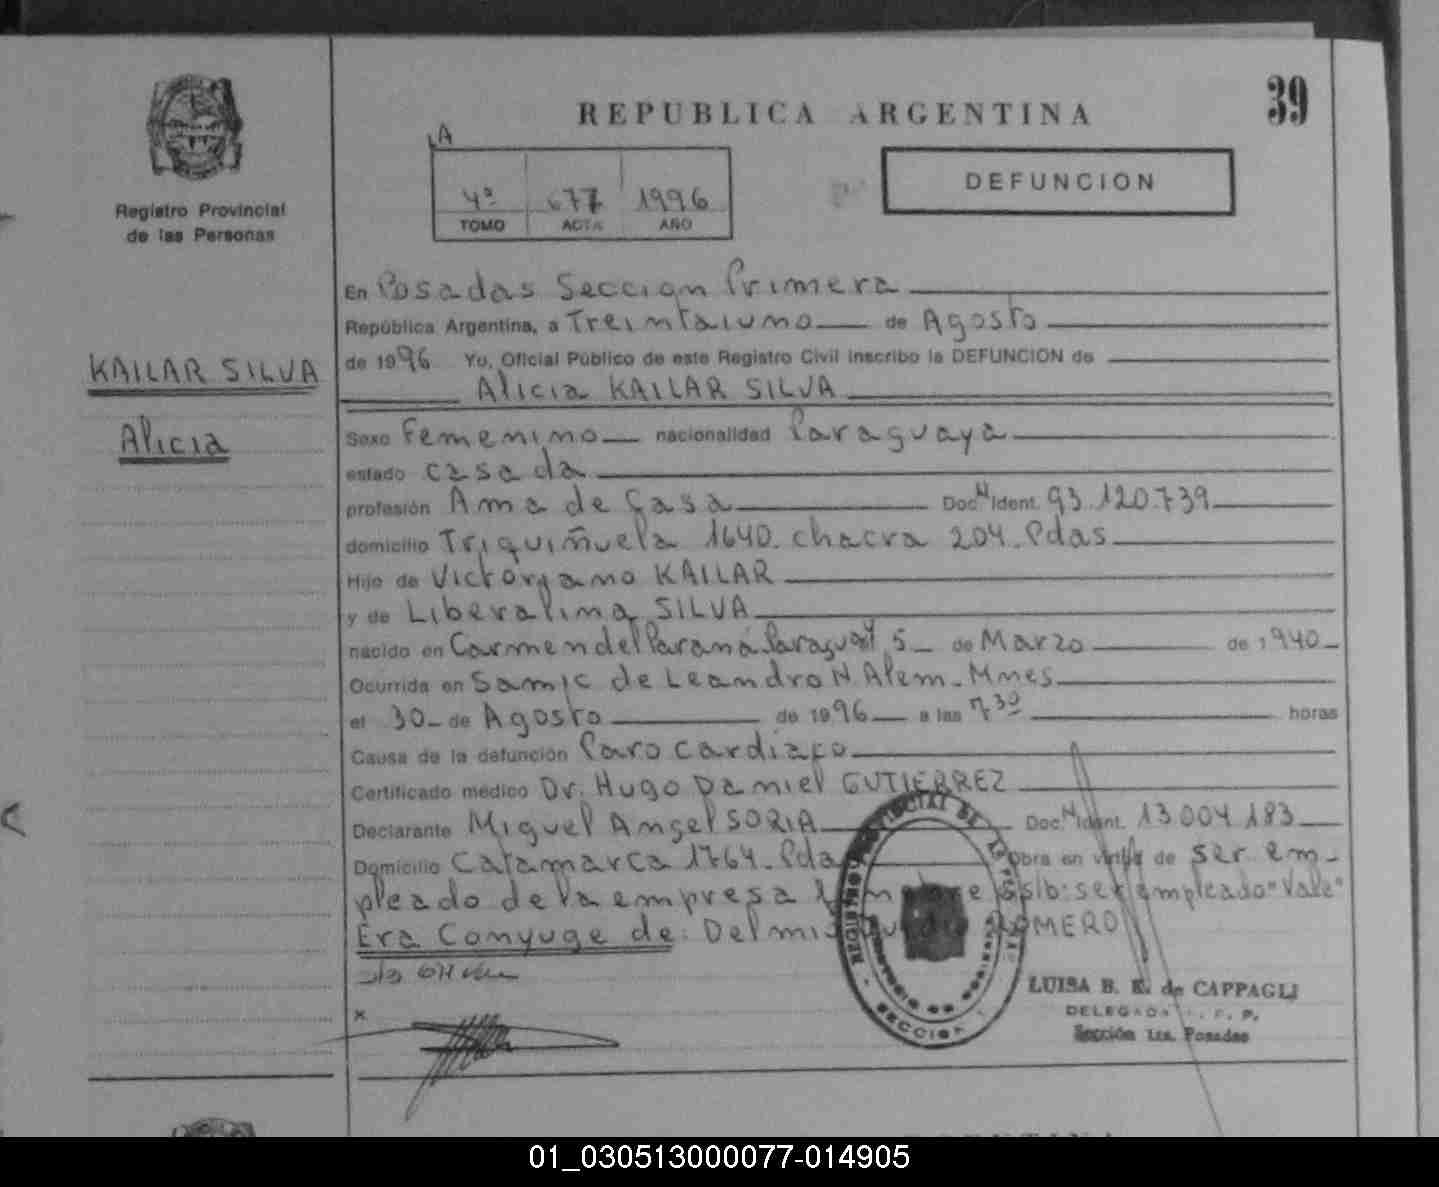 39
REPUBLICA ARGENTINA
Registro Provincial
de las Personas
4ª 677 1996
TOMO ACTA AÑO
DEFUNCION
KAILAR SILVA
Alicia
En Posadas Seccion Primera
República Argentina, a Treintaiuno de Agosto
de 1996 Yo, Oficial Público de este Registro Civil inscribo la DEFUNCION de
Alicia KAILAR SILVA
Sexo Femenino nacionalidad Paraguaya
estado casada
profesión Ama de Casa Doc. Ident. 93.120.739
domicilio Triquiñuela 1640. chacra 204. Pdas
Hijo de Victorgano KAILAR
y de Liberalina SILVA
nacido en Carmen del Paraná Paraguay 5 de Marzo de 1940
Ocurrida en Samic de Leandro N. Alem. Mnes
el 30 de Agosto de 1996 a las 7 30 horas
Causa de la defunción Paro cardiaco
Certificado médico Dr. Hugo Daniel GUTIERREZ
Declarante Miguel Angel SORIA Doc. Ident. 13.004.183
Domicilio Catamarca 1764. Pdas Obra en virtud de ser em-
pleado de la empresa s/b: ser empleado "Vale"
Era Conyuge de: ROMERO
REGISTRO PROVINCIAL DE LAS PERSONAS
SECCION
LUISA B. E. de CAPPAGLI
DELEGADA
Sección 1ra. Posadas
01_030513000077-014905